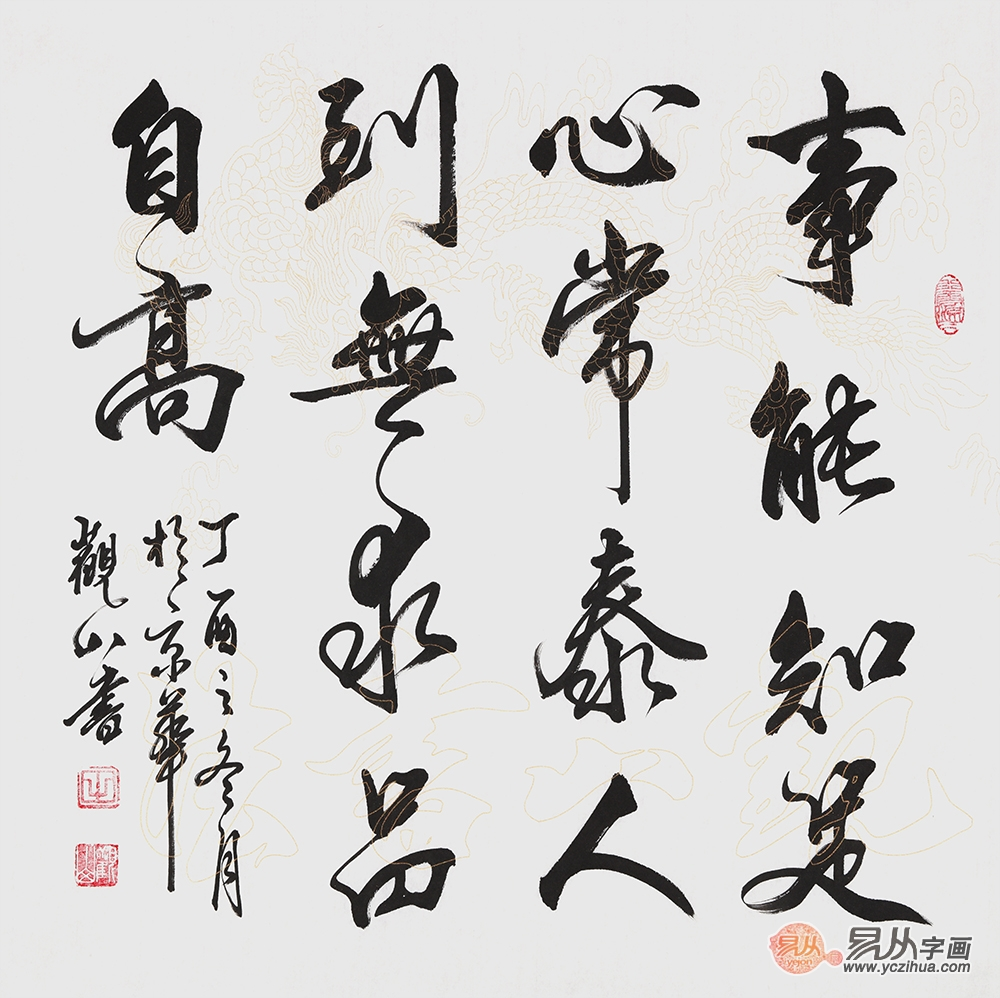 事能知足
心常泰人
到無求品
自高
丁酉之冬月
於京華
觀山書
易从字画
易从
yicon
www.yczihua.com